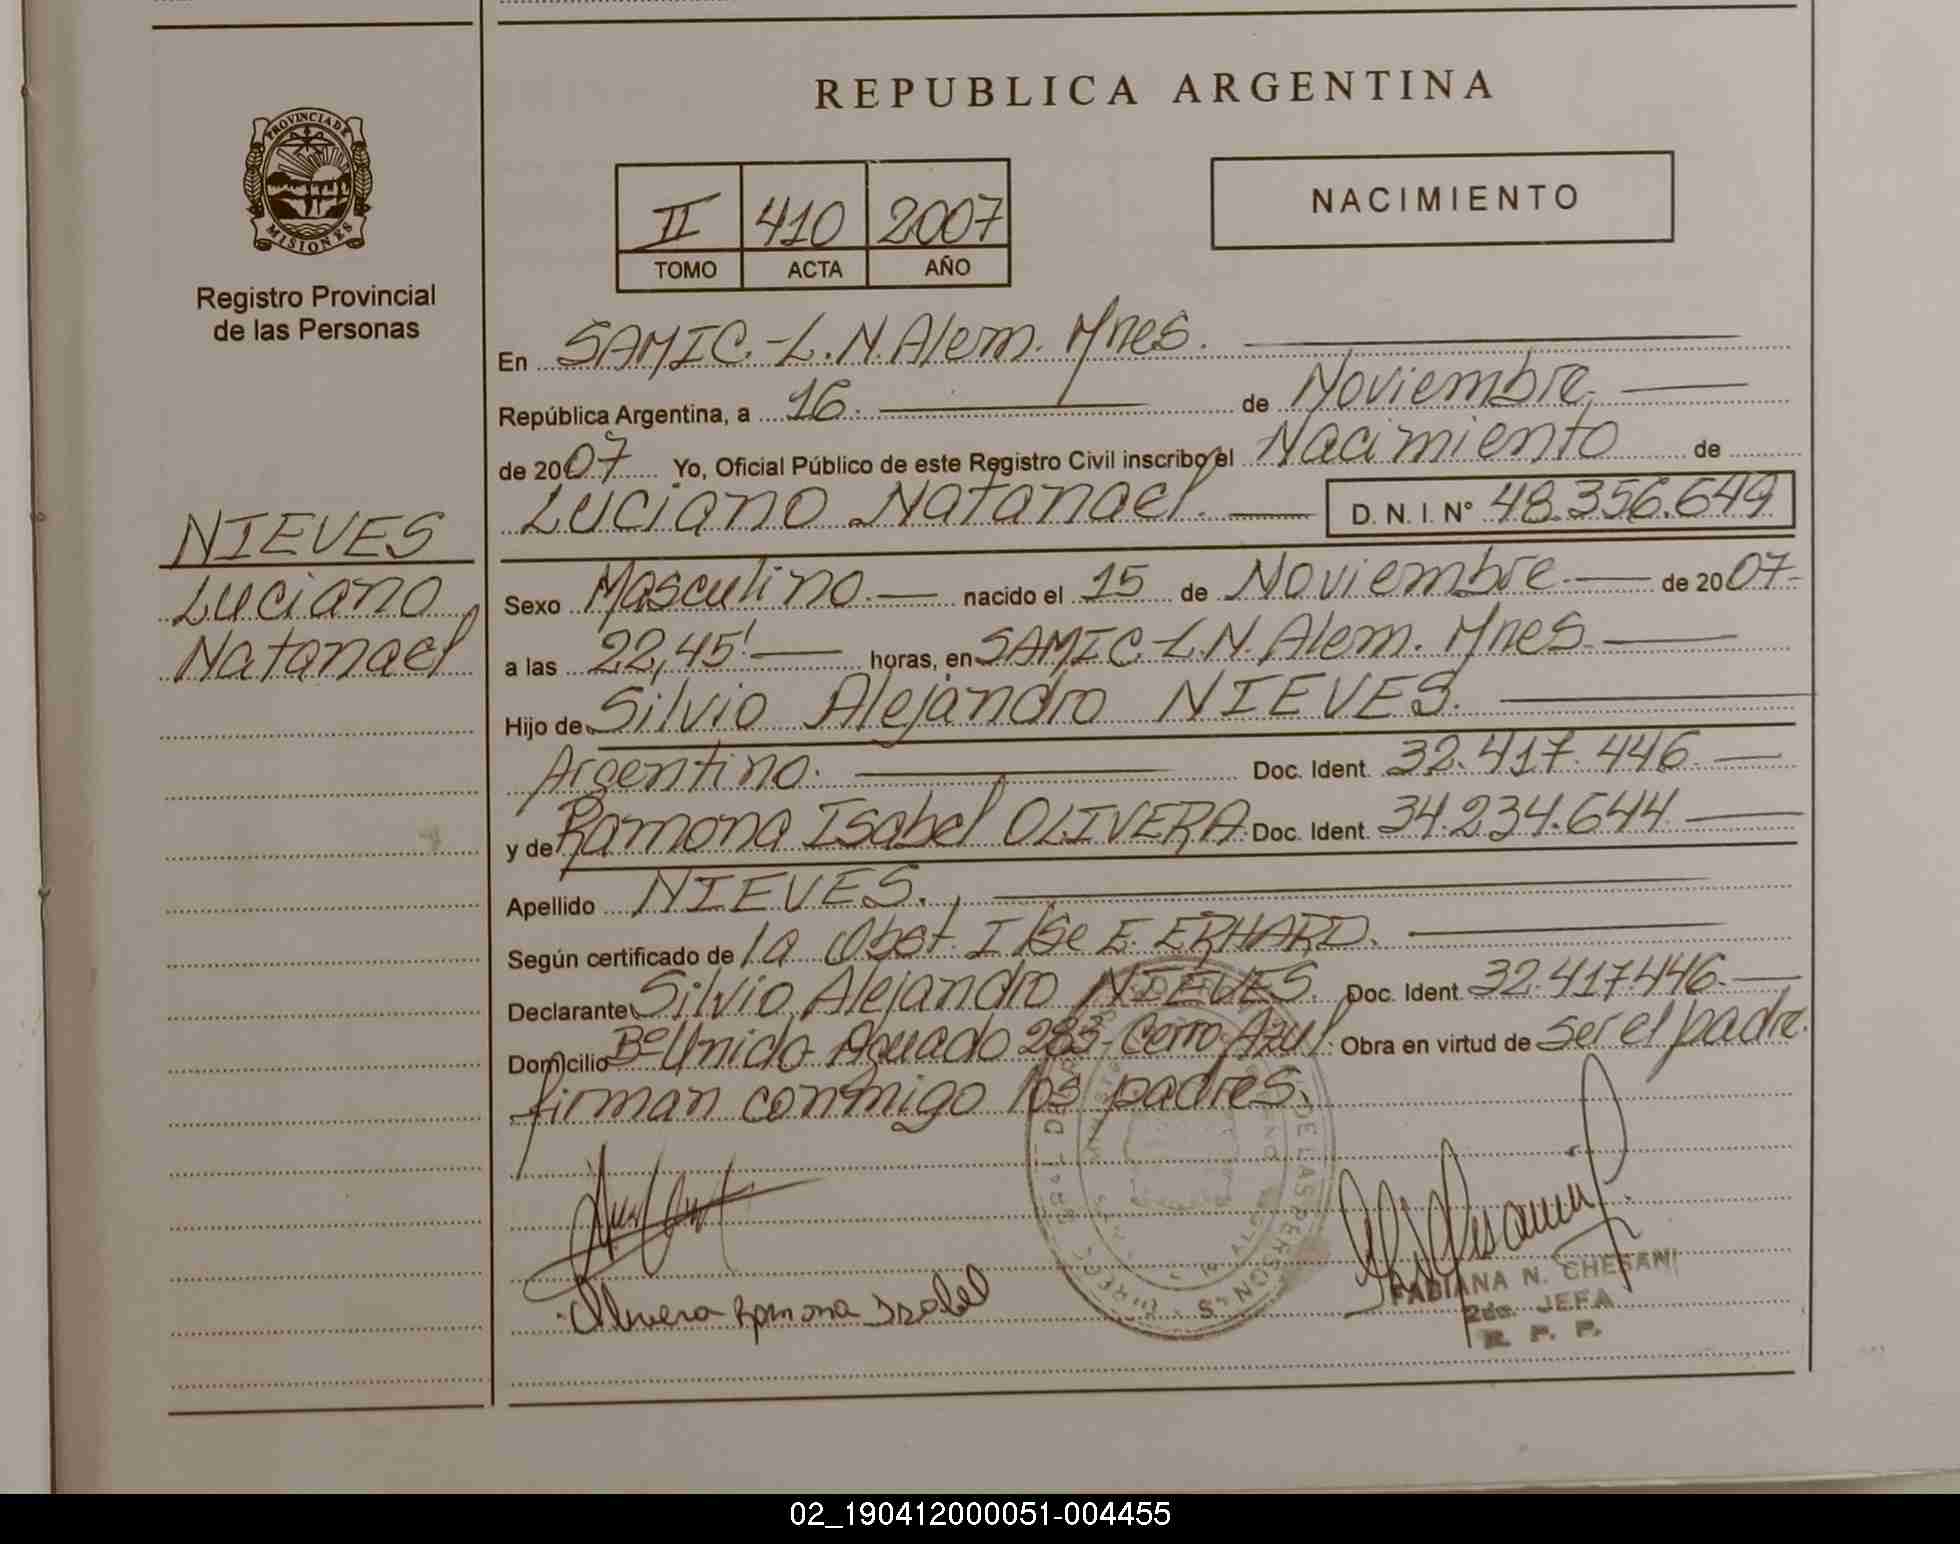 REPUBLICA ARGENTINA
PROVINCIA DE
MISIONES
Registro Provincial
de las Personas
II 410 2007
TOMO ACTA AÑO
NACIMIENTO
NIEVES
Luciano
Natanael
En SAMIC.-L.N.Alem. Mnes.
República Argentina, a 16. de Noviembre.
de 2007 Yo, Oficial Público de este Registro Civil inscribo el Nacimiento de
Luciano Natanael. D. N. I. N° 48.356.649
Sexo Masculino. nacido el 15 de Noviembre. de 2007-
a las 22,45' horas, en SAMIC.-L.N. Alem. Mnes.
Hijo de Silvio Alejandro NIEVES.
Argentino. Doc. Ident. 32.417.446.
y de Ramona Isabel OLIVERA. Doc. Ident. 34.234.644
Apellido NIEVES.
Según certificado de la Obst. Ilse E. ERHARD.
Declarante Silvio Alejandro NIEVES. Doc. Ident. 32.417.446.
Domicilio B° Unido Aguado 283- Cerro Azul. Obra en virtud de ser el padre.
firman conmigo los padres.
Olivera Ramona Isabel
FABIANA N. CHESANI
2da. JEFA
R. P. P.
DE LAS PERSONAS
02_190412000051-004455